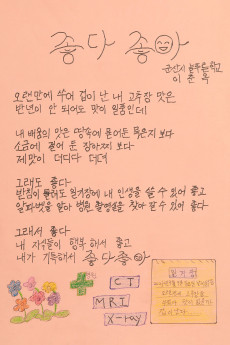 좋다 좋아
군산시 늘푸른학교
이 춘 옥
오랜만에 쑤어 겁이 난 내 고추장 맛은
반년이 안 되어도 맛이 일품인데
내 배움의 맛은 땅속에 묻어둔 묵은지 보다
소금에 절여 둔 장아찌 보다
제맛이 더디다 더뎌
그래도 좋다
받침이 틀려도 일기장에 내 인생을 쓸 수 있어 좋고
알파벳을 알아 병원 촬영실을 찾아 갈 수 있어 좋다
그래서 좋다
내 자식들이 행복해서 좋고
내가 기특해서 좋다 좋아
CT
MRI
X-ray
일기장